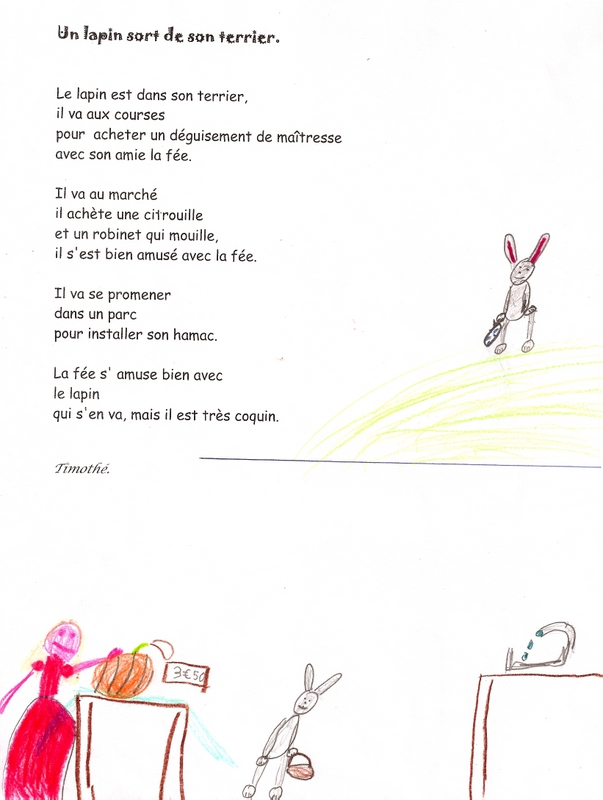 Un lapin sort de son terrier.
Le lapin est dans son terrier,
il va aux courses
pour acheter un déguisement de maîtresse
avec son amie la fée.
Il va au marché
il achète une citrouille
et un robinet qui mouille,
il s'est bien amusé avec la fée.
Il va se promener
dans un parc
pour installer son hamac.
La fée s' amuse bien avec
le lapin
qui s'en va, mais il est très coquin.
Timothé.
3€50